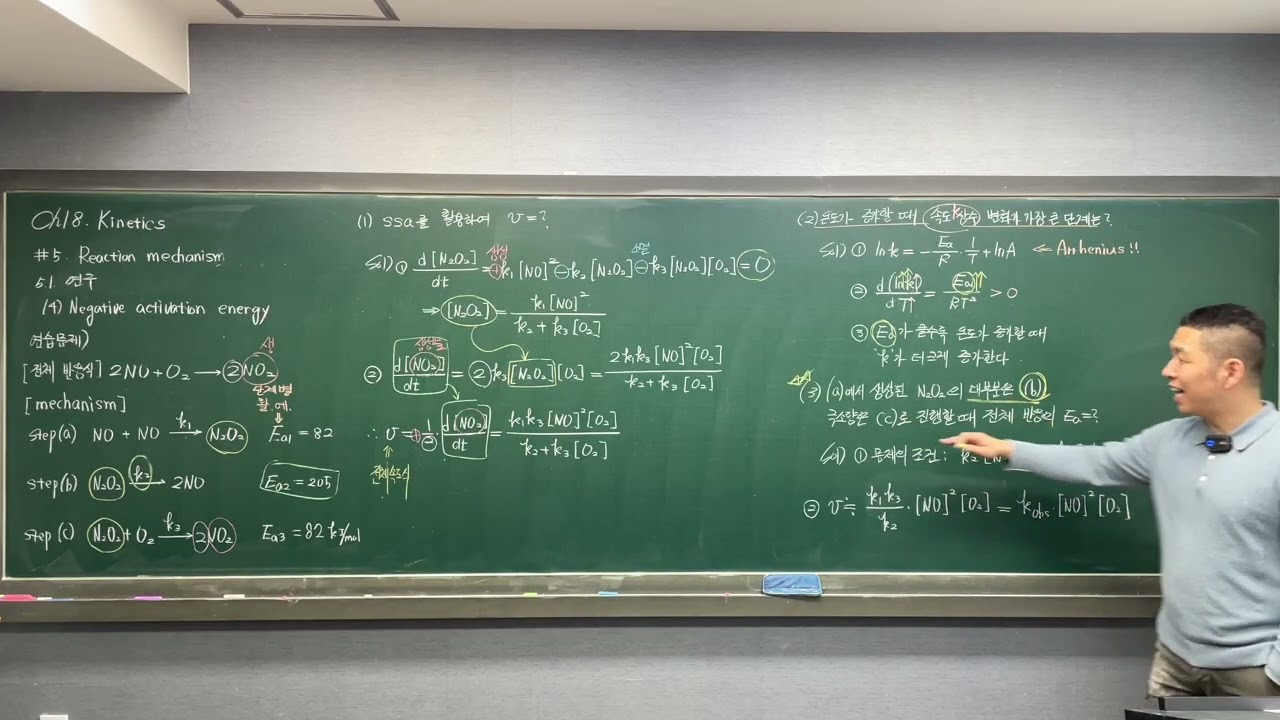 Ch18. Kinetics
#5. Reaction mechanism
5.1. 연주
(4) Negative activation energy
연습문제)
생
[전체 반응식] 2NO + O₂ → 2NO₂
[mechanism]
단계별
활.에.
step(a) NO + NO →k₁ N₂O₂ Ea1 = 82
step(b) N₂O₂ →k₂ 2NO Ea2 = 205
step(c) N₂O₂ + O₂ →k₃ 2NO₂ Ea3 = 82 kJ/mol
(1) ssa를 활용하여 v=?
생성
소멸
sol) ① d[N₂O₂]/dt = +k₁[NO]² − k₂[N₂O₂] − k₃[N₂O₂][O₂] = 0
⇒ [N₂O₂] = k₁[NO]² / k₂ + k₃[O₂]
생성물
② d[NO₂]/dt = 2k₃[N₂O₂][O₂] = 2k₁k₃[NO]²[O₂] / k₂ + k₃[O₂]
∴ v = + 1/2 d[NO₂]/dt = k₁k₃[NO]²[O₂] / k₂ + k₃[O₂]
전체속도식
(2) 온도가 증가할 때 속도상수 변화가 가장 큰 단계는?
sol) ① ln k = − Ea/R · 1/T + ln A ← Arrhenius!!
② d(ln k)/dT = Ea/RT² > 0
③ Ea가 클수록 온도가 증가할 때
'k'가 더 크게 증가한다.
(3) (a)에서 생성된 N₂O₂의 대부분은 (b)
극소량은 (c)로 진행할 때 전체 반응의 Ea=?
sol) ① 문제의 조건: k₂[N
② v ≒ k₁k₃/k₂ · [NO]²[O₂] = kobs · [NO]²[O₂]